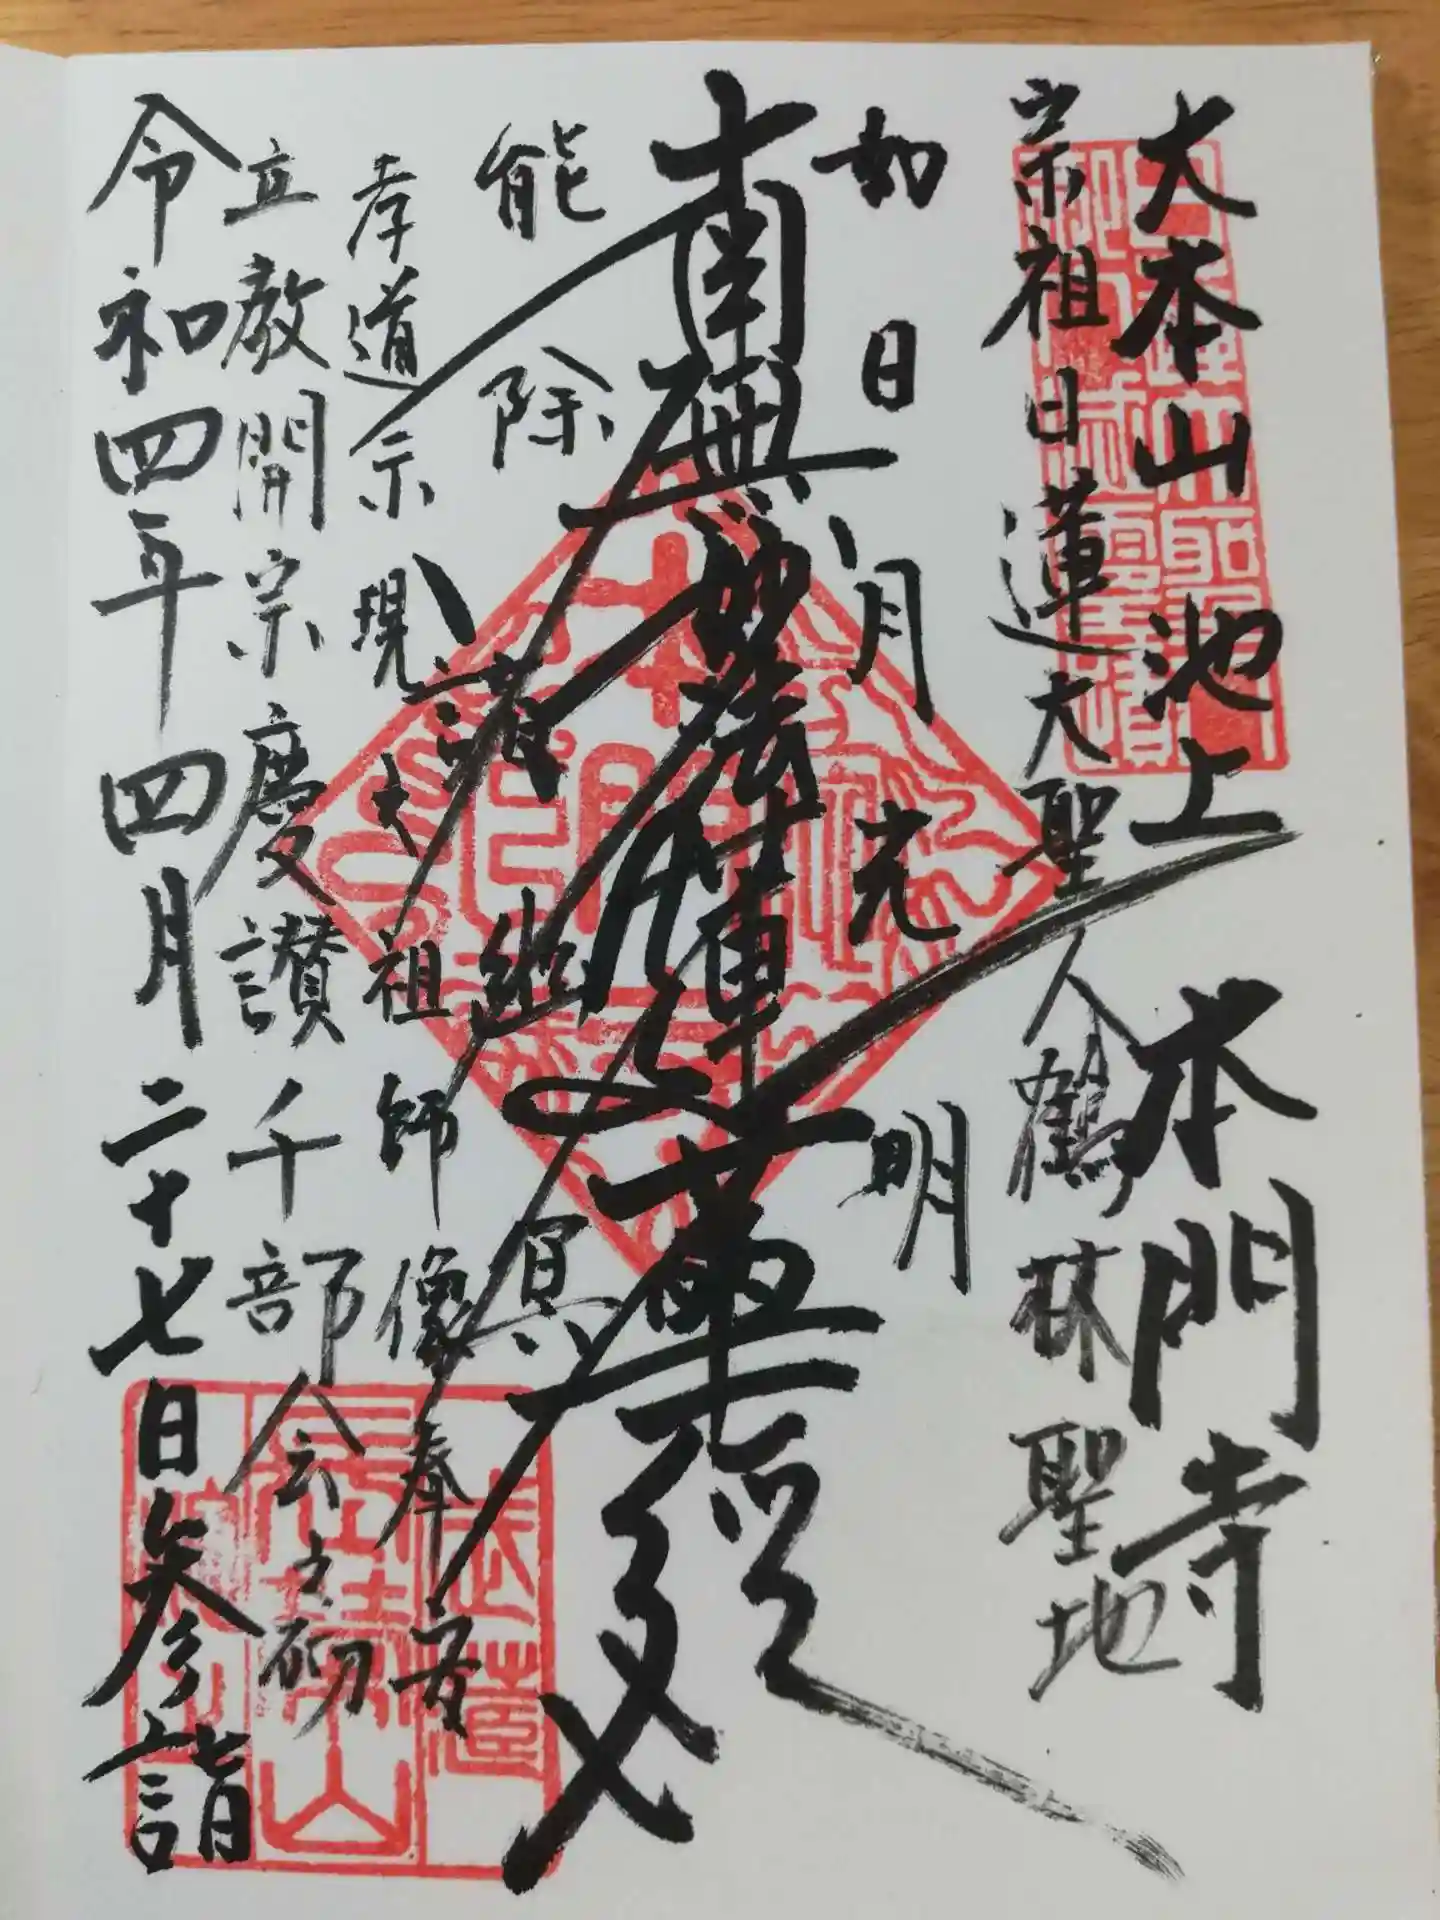 大本山池上本門寺
宗祖日蓮大聖人鶴林聖地
如日月光明
南無妙法蓮華経
能除諸幽冥
孝道示現大祖師像奉安
立教開宗慶讃千部会之砌
令和四年四月二十七日参詣